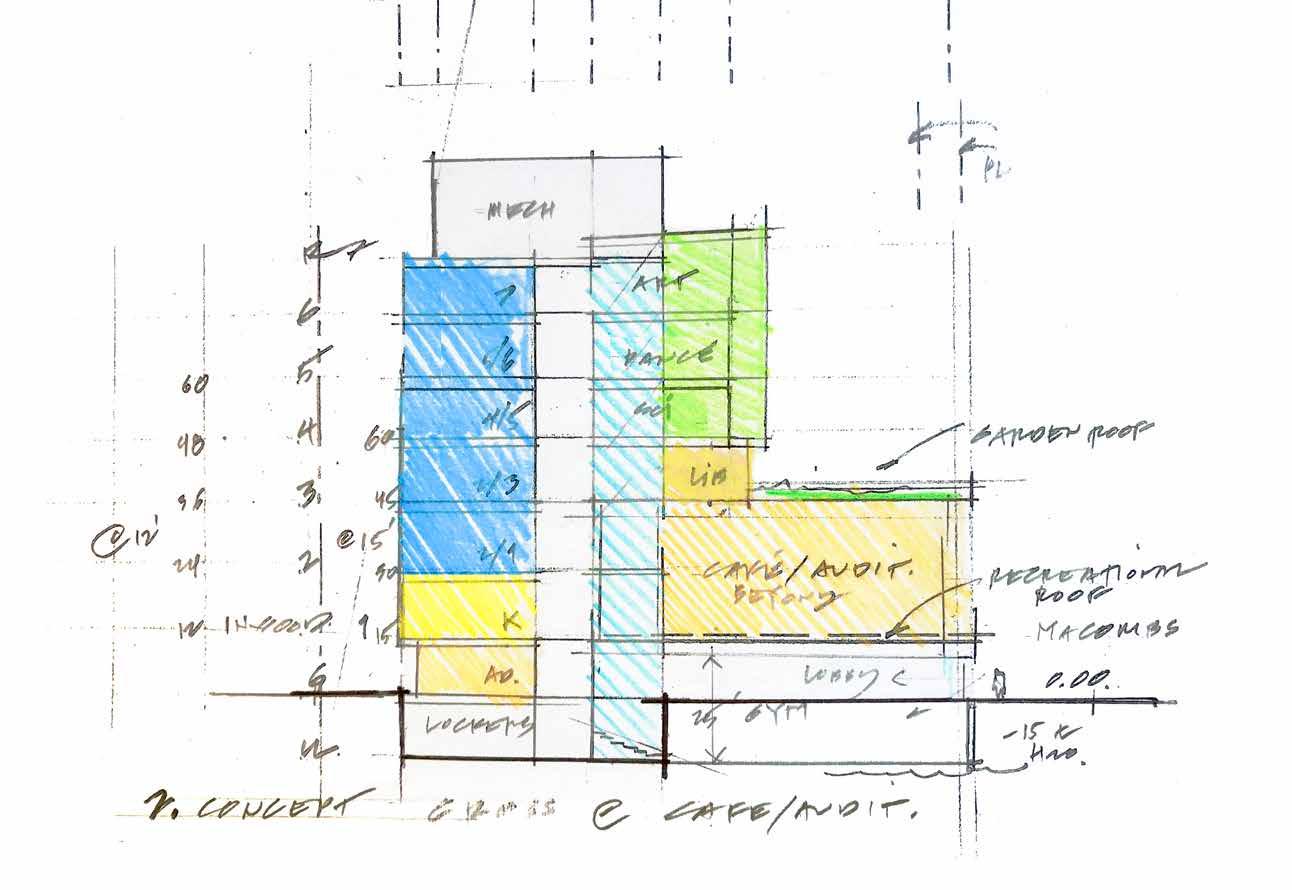 PL
MECH
R
7
ART
6
6
DANCE
5
5/6
60
SCI
4/5
4
60
48
GARDEN ROOF
LIB
2/3
3
45
36
@12'
@15'
CAFÉ/AUDIT.
BEYOND
2
30
24
RECREATIONAL
ROOF
K
1
15
12
MACOMBS
AD.
G
LOBBY
0.00.
LOCKERS
25' GYM
-15 ±
H2O.
CONCEPT CROSS @ CAFE/AUDIT.